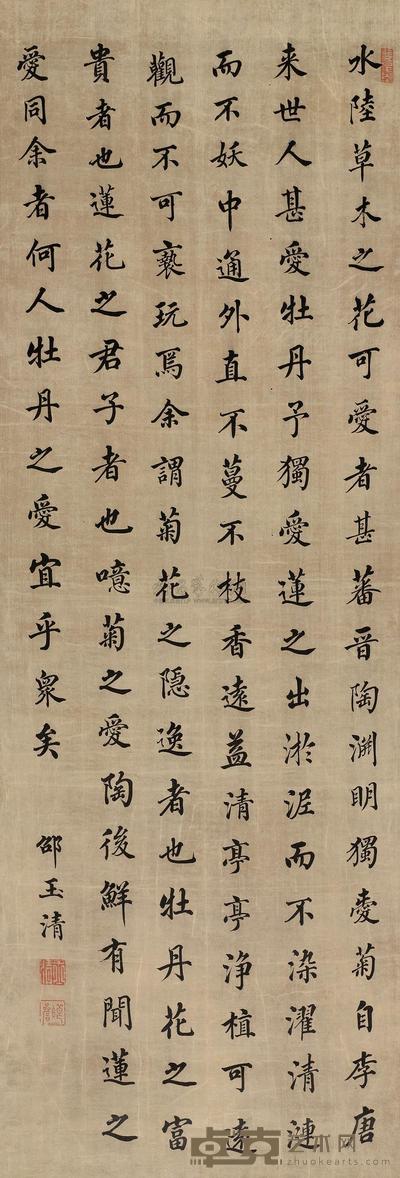 水陸草木之花可愛者甚蕃晋陶淵明獨愛菊自李唐
来世人甚愛牡丹予獨愛蓮之出淤泥而不染濯清漣
而不妖中通外直不蔓不枝香遠益清亭亭浄植可遠
觀而不可褻玩焉余謂菊花之隐逸者也牡丹花之富
貴者也蓮花之君子者也噫菊之愛陶後鮮有聞蓮之
愛同余者何人牡丹之愛宜乎眾矣
邵玉清
卓克艺术网
zhuokearts.com